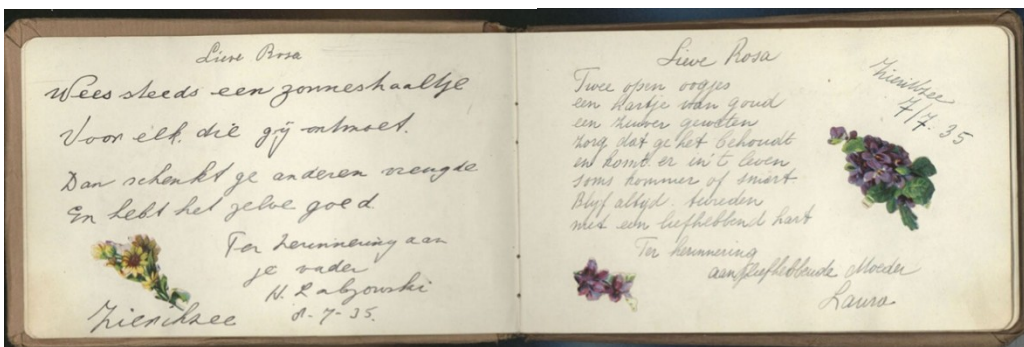 Lieve Rosa
Wees steeds een zonneshaaltje
Voor elk, die gij ontmoet.
Dan schenkt ge anderen vreugde
En hebt het zelve goed
Ter herinnering aan
je vader
H.
8-7-35.
Zierikzee
Lieve Rosa
Zierikzee
7/7.35
Twee open oogjes
een hartje van goud
een zuiver geweten
zorg dat ge het behoudt
en komt er in 't leven
soms kommer of smart.
Blijf altyd tevreden
met een liefhebbend hart
Ter herinnering
aan liefhebbende Moeder
Laura